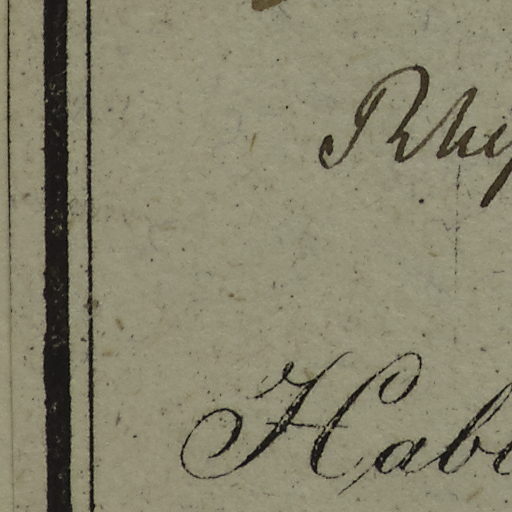 Rhy
Hab